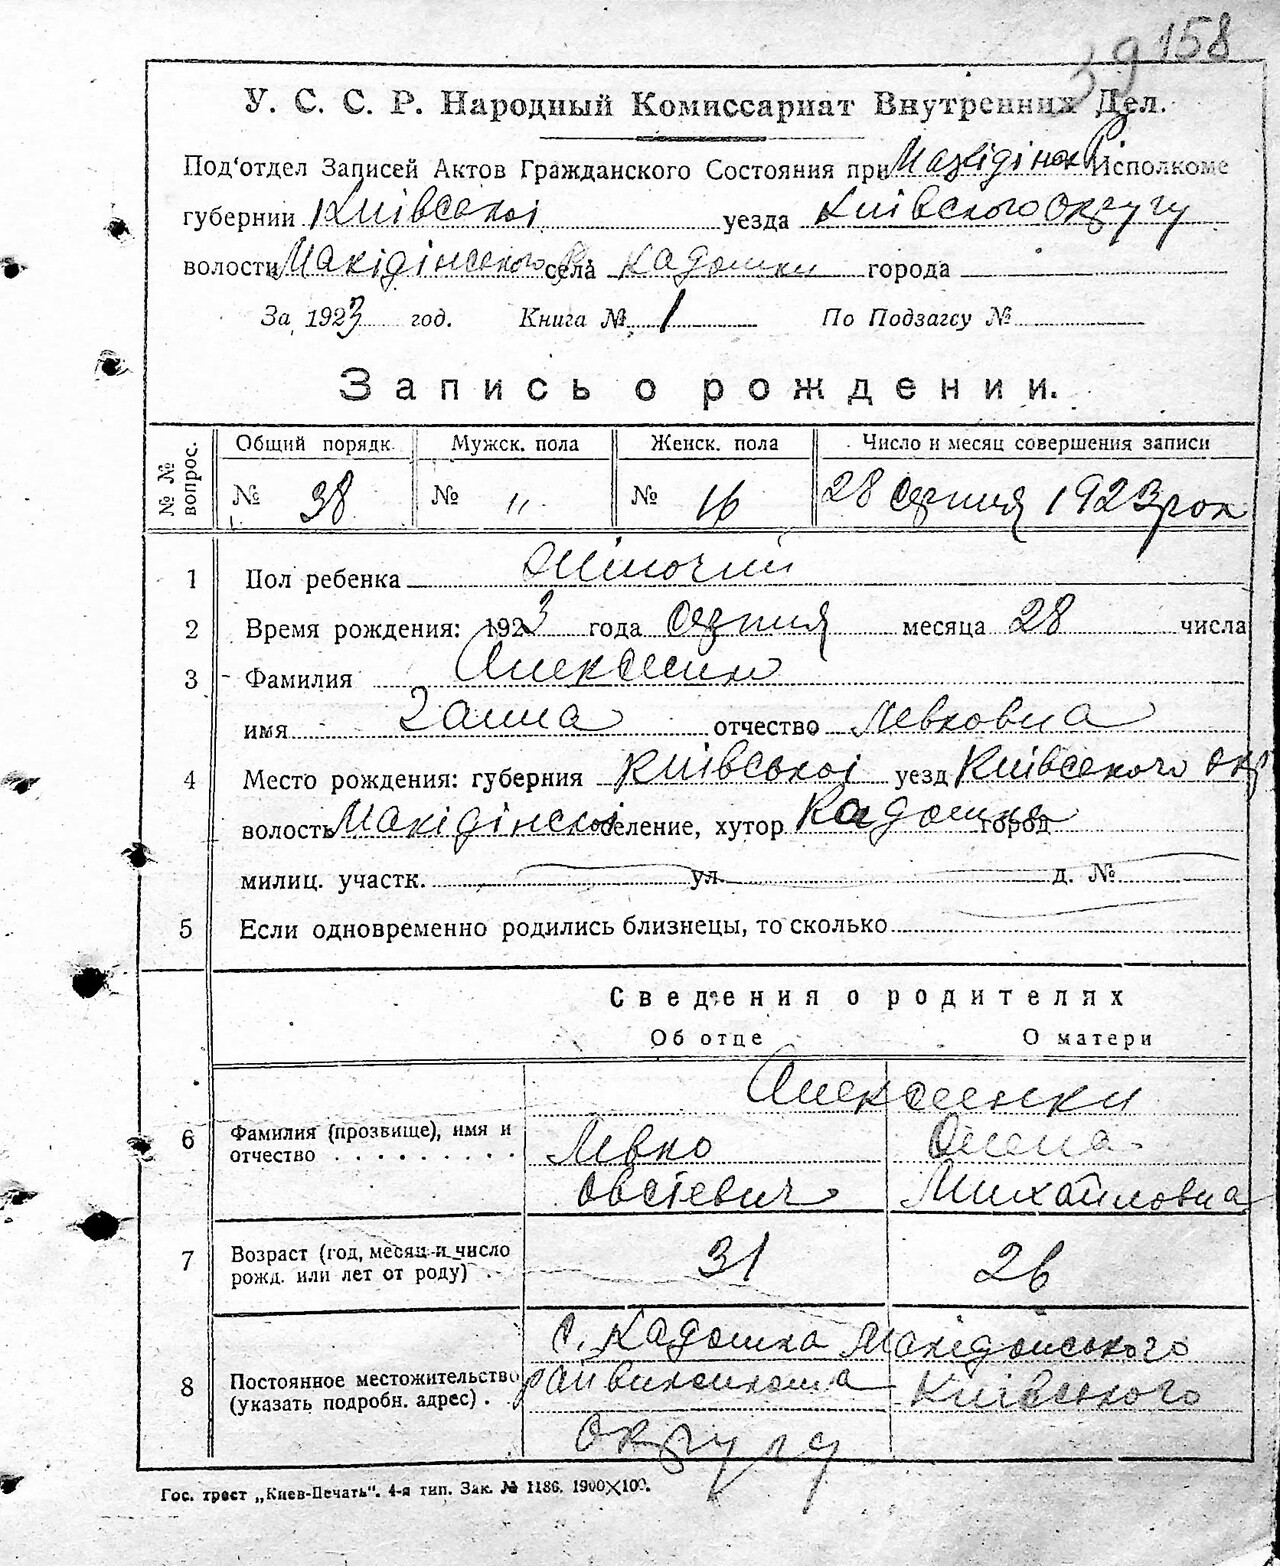 39 158
У. С. С. Р. Народный Комиссариат Внутренних Дел.
Под'отдел Записей Актов Гражданского Состояния при Исполкоме
губернии Київської уезда Київського округу
волости Макідінського села Кадомки города
За 1923 год. Книга № 1 По Подзагсу №
Запись о рождении.
№ № вопрос.
Общий порядк. Мужск. пола Женск. пола Число и месяц совершения записи
№ 38 № " № 16 28 серпня 1923 рок
1 Пол ребенка Жіночий
2 Время рождения: 1923 года серпня месяца 28 числа
3 Фамилия
имя Ганна отчество Левковна
4 Место рождения: губерния Київської уезд Київського окр
волость Макідінської селение, хутор Кадомка город
милиц. участк. ул. д. №
5 Если одновременно родились близнецы, то сколько
Сведения о родителях
Об отце О матери
Алексеенки
6 Фамилия (прозвище), имя и
отчество . . . . . . . . . Левко Олена
Овсіевич Михайловна
7 Возраст (год, месяц и число
рожд. или лет от роду) . 31 26
с. Кадомка
8 Постоянное местожительство
(указать подробн. адрес) . райвиконкома Київського
округу
Гос. трест „Киев-Печать". 4-я тип. Зак. № 1186. 1900×100.